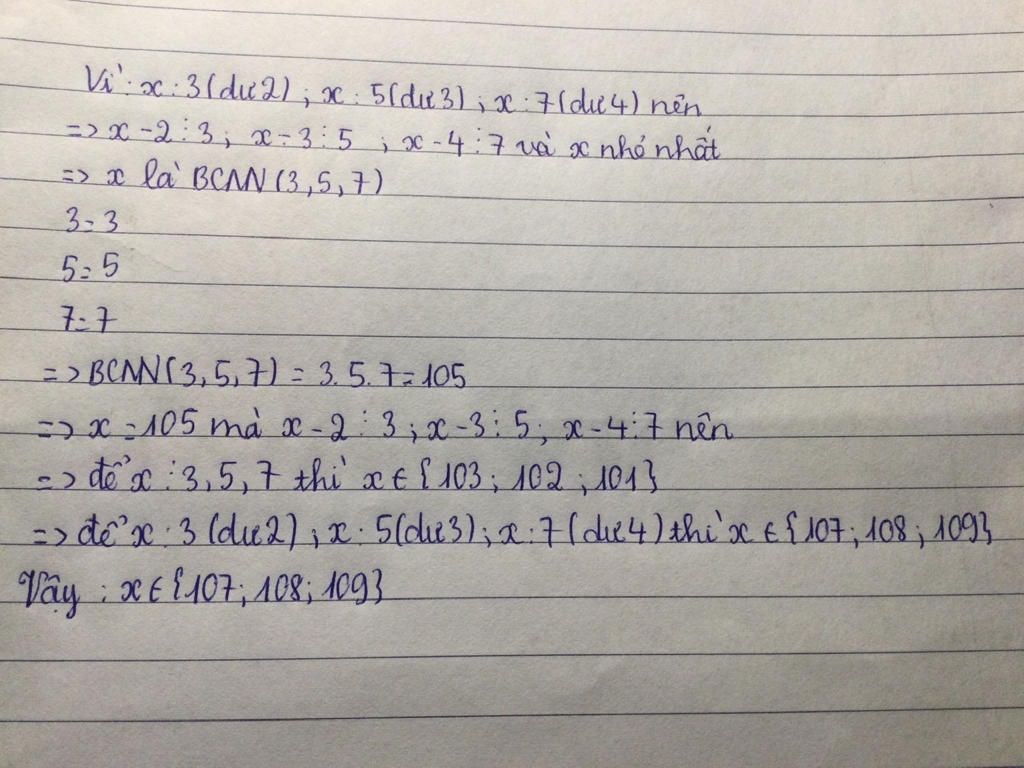 Vì: x : 3 (dư 2) ; x : 5 (dư 3) ; x : 7 (dư 4) nên
=> x - 2 ⋮ 3 ; x - 3 ⋮ 5 ; x - 4 ⋮ 7 và x nhỏ nhất
=> x là BCNN (3, 5, 7)
3 = 3
5 = 5
7 = 7
=> BCNN (3, 5, 7) = 3. 5. 7 = 105
=> x = 105 mà x - 2 ⋮ 3 ; x - 3 ⋮ 5 ; x - 4 ⋮ 7 nên
=> để x ⋮ 3, 5, 7 thì x ∈ {103 ; 102 ; 101}
=> để x : 3 (dư 2) ; x : 5 (dư 3) ; x : 7 (dư 4) thì x ∈ {107 ; 108 ; 109}
Vậy : x ∈ {107 ; 108 ; 109}